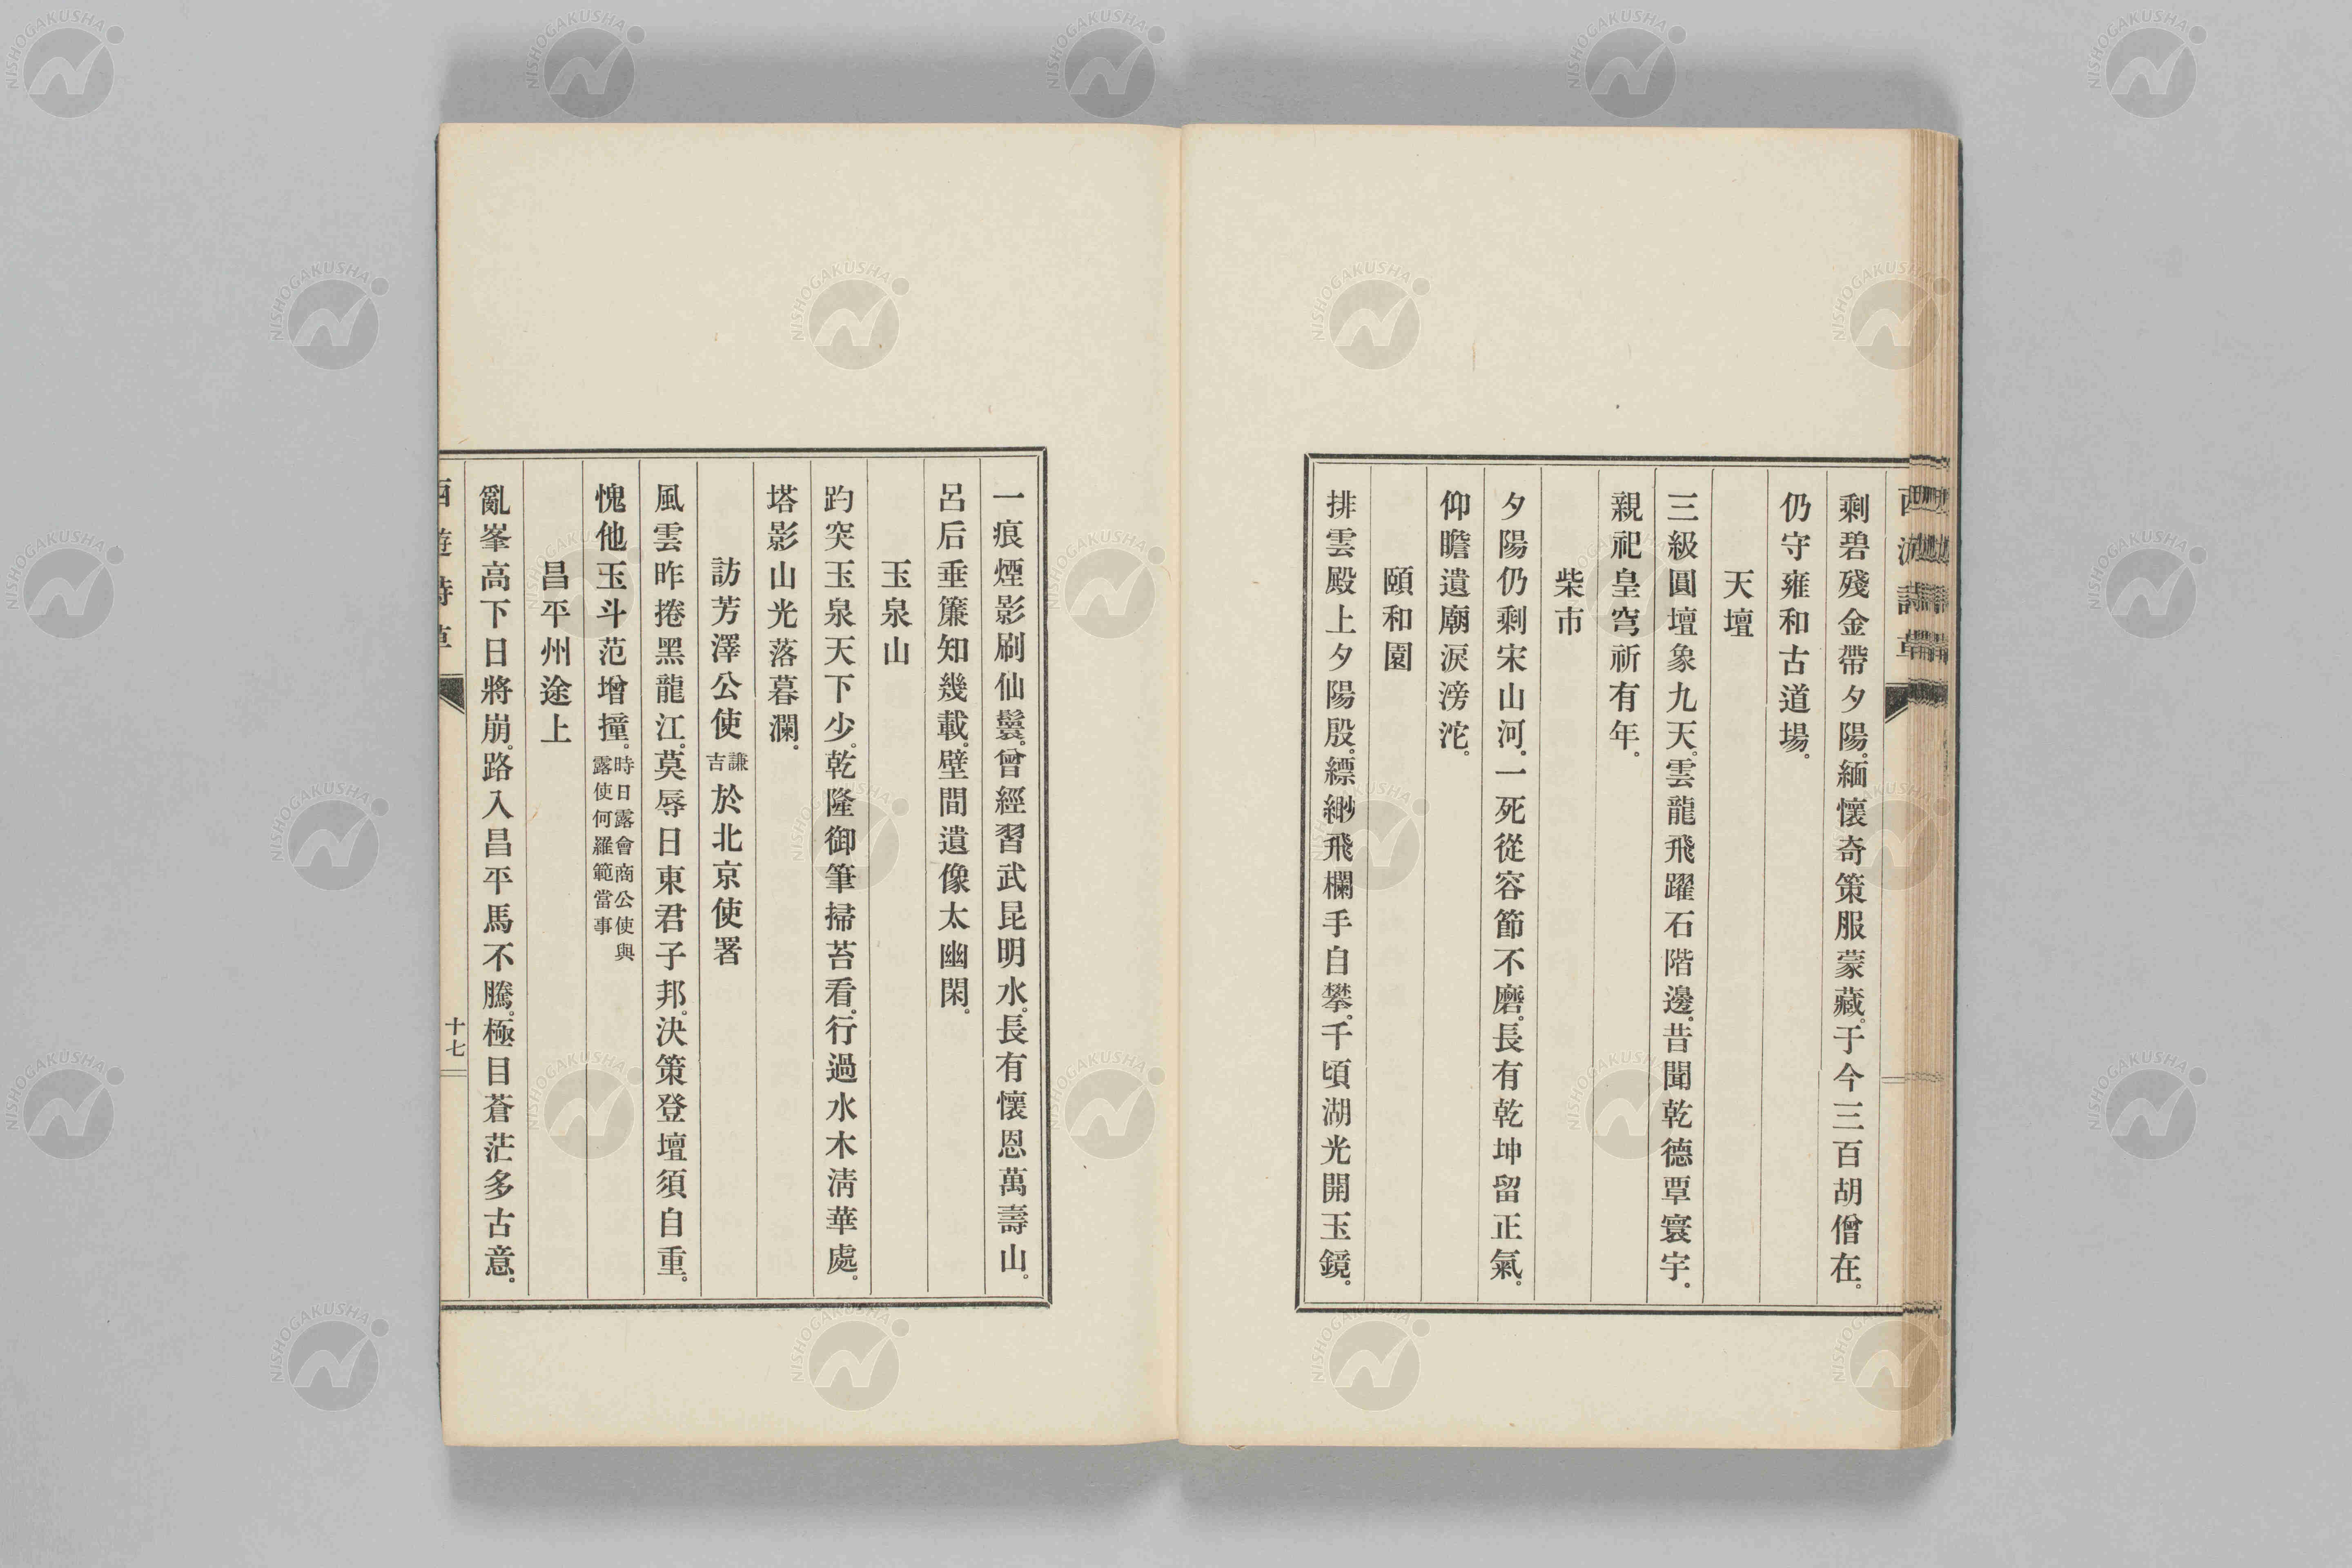 剩碧殘金帶夕陽。緬懷奇策服蒙藏。于今三百胡僧在。
仍守雍和古道場。
天壇
三級圓壇象九天。雲龍飛躍石階邊。昔聞乾德覃寰宇。
親祀皇穹祈有年。
柴市
夕陽仍剩宋山河。一死從容節不磨。長有乾坤留正氣。
仰瞻遺廟淚滂沱。
頤和園
排雲殿上夕陽殷。縹緲飛欄手自攀。千頃湖光開玉鏡。
一痕煙影刷仙鬟。曾經習武昆明水。長有懷恩萬壽山。
呂后垂簾知幾載。壁間遺像太幽閑。
玉泉山
趵突玉泉天下少。乾隆御筆掃苔看。行過水木淸華處。
塔影山光落暮瀾。
訪芳澤公使謙吉於北京使署
風雲昨捲黑龍江。莫辱日東君子邦。決策登壇須自重。
愧他玉斗范增撞。時日露會商公使與露使何羅範當事
昌平州途上
亂峯高下日將崩。路入昌平馬不騰。極目蒼茫多古意。
西遊詩草
十七
NISHOGAKUSHA